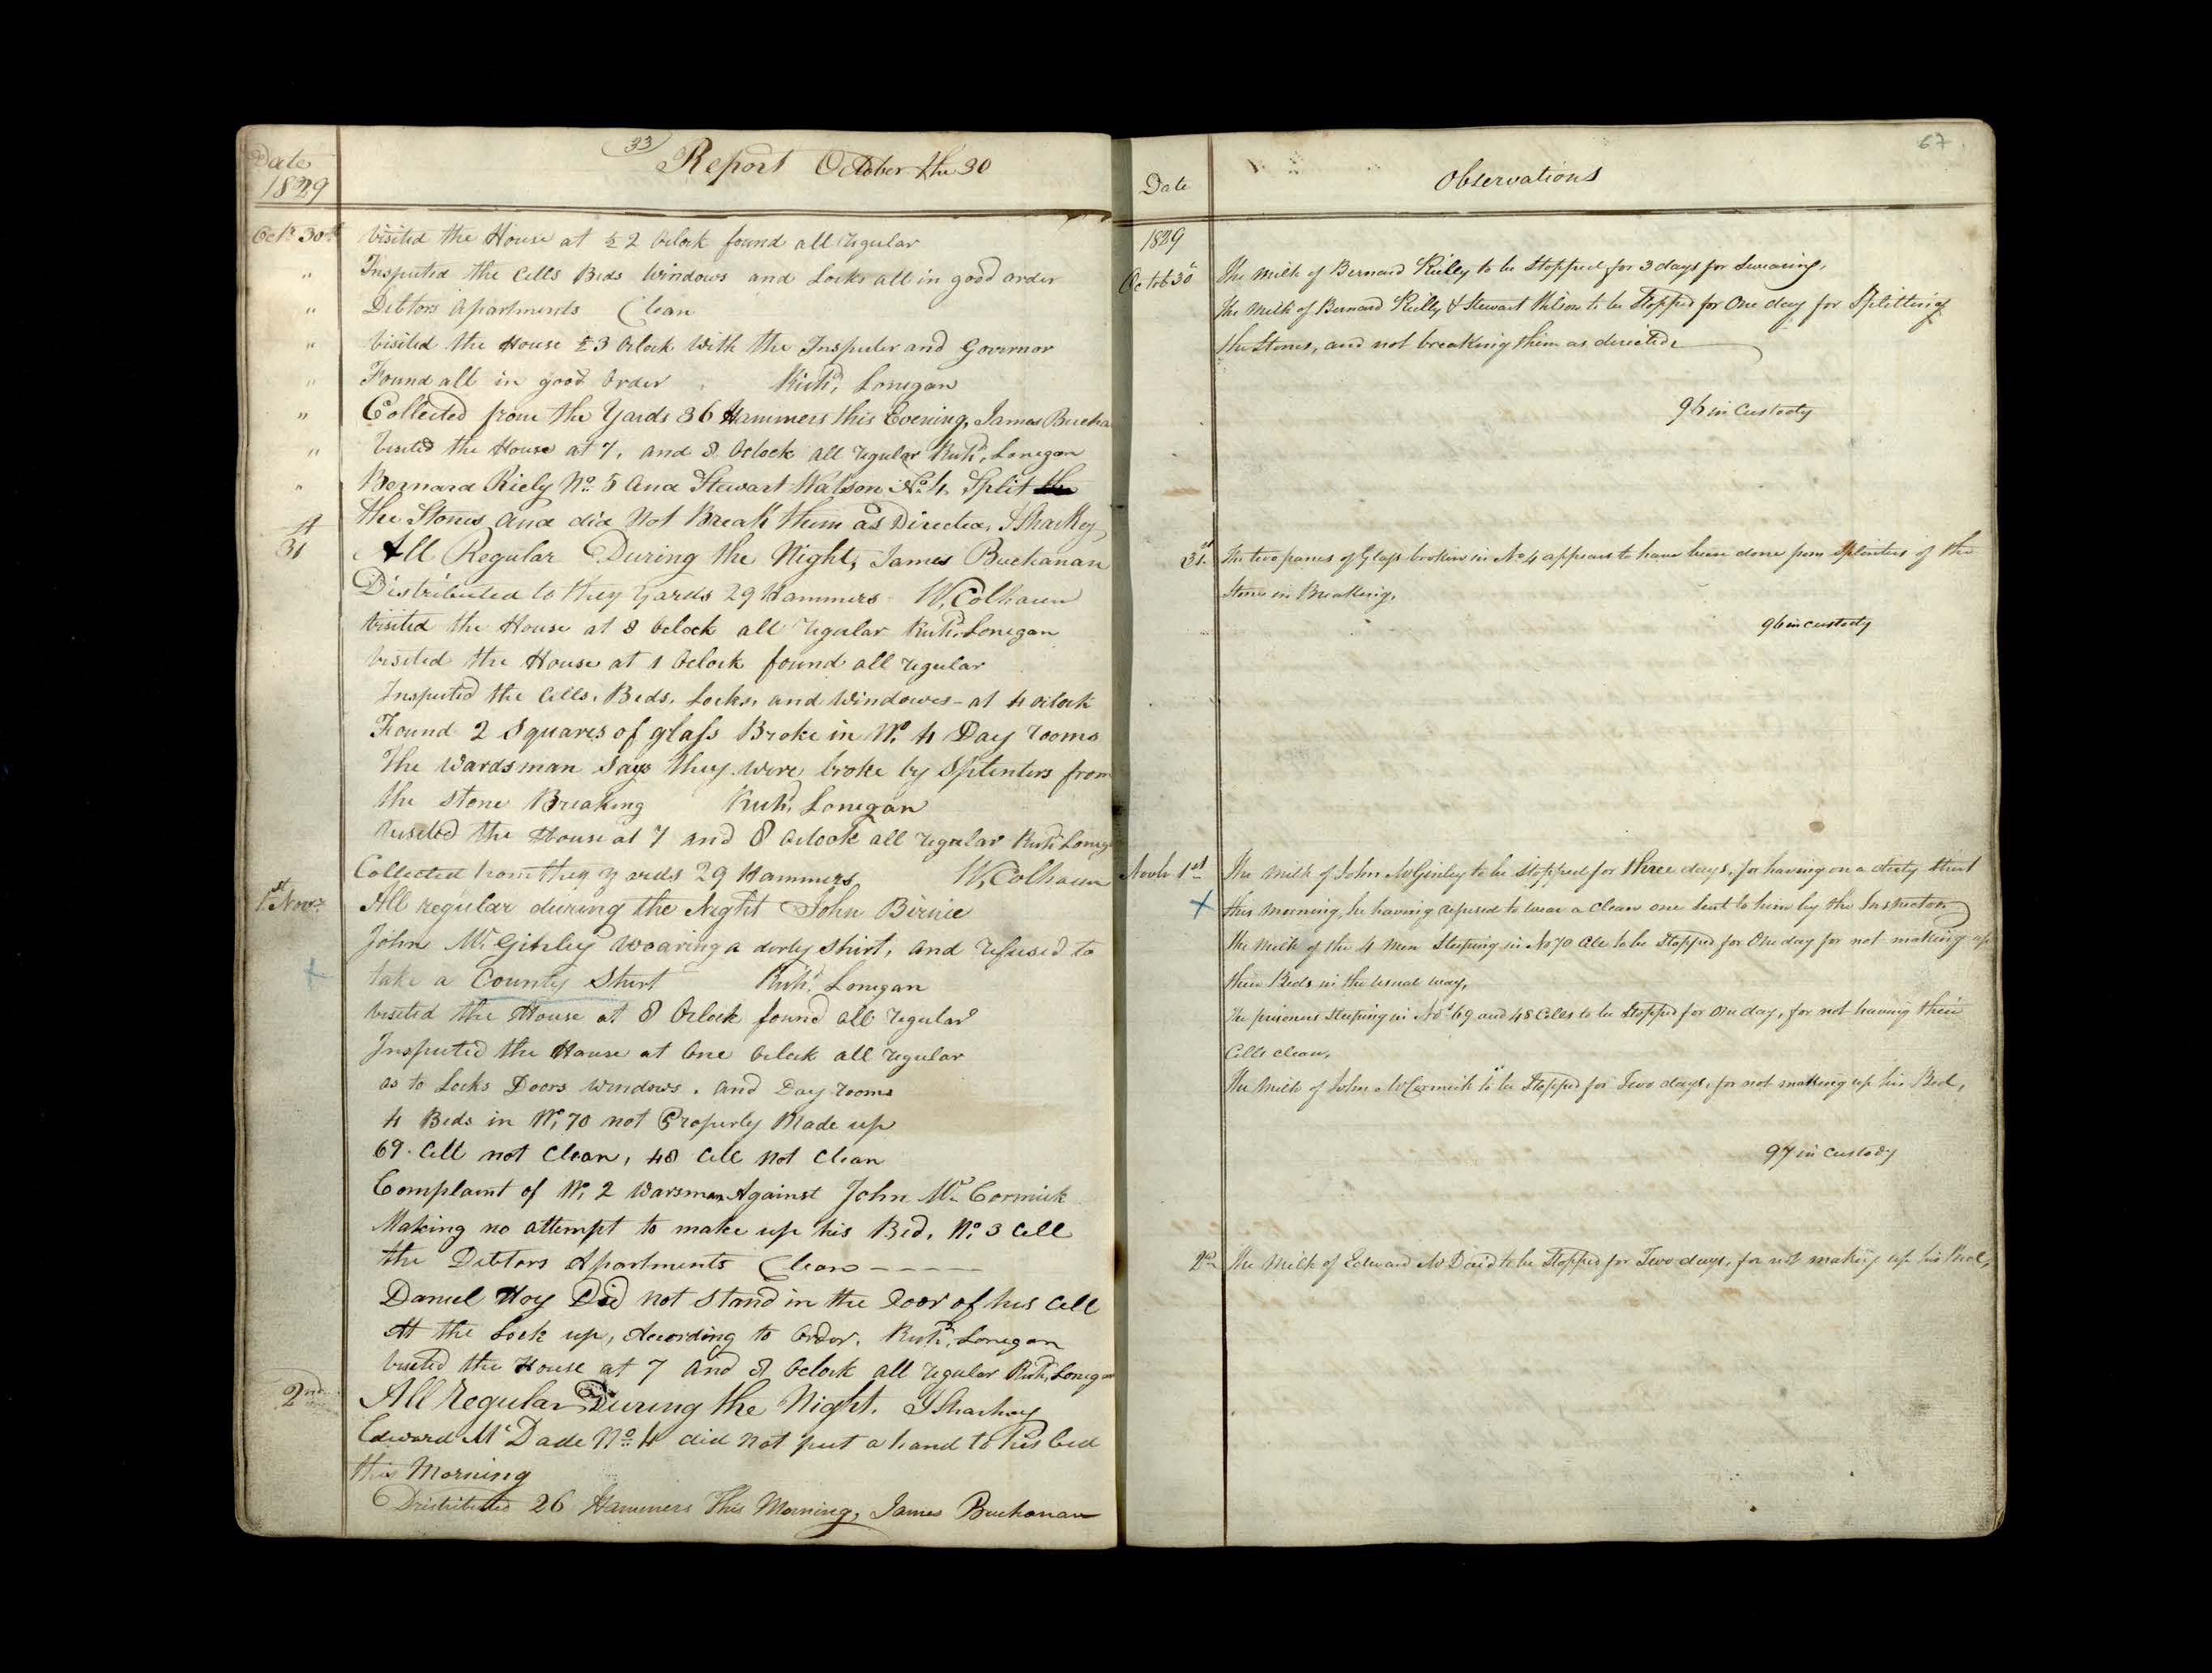 Date
1829
33
Report October the 30
Octr 30th visited the House at ½ 2 Oclock found all regular
" Inspected the Cells Beds Windows and Locks all in good order
" Debtors Apartments Clean
" visited the House ½ 3 Oclock With the Inspecter and Governor
" Found all in good Order Richd. Lonegan
" Collected from the Yards 36 Hammers this Evening, James Bucha
" Visited the House at 7, and 8 Oclock all regular Richd. Lonegan
" Bernard Riely No. 5 and Stewart Watson No. 4 Split the
the Stones and did Not Break them as Directed, J Sharkey
31 All Regular During the Night, James Buchanan
Distributed to they Yards 29 Hammers W. Colhaun
Visited the House at 8 Oclock all regular Richd. Lonegan
visited the House at 1 Oclock found all regular
Inspected the Cells, Beds, Locks, and Windowes - at 4 Oclock
Found 2 Squares of glass Broke in No. 4 Day rooms
The Wardsman Says they were broke by Splenters from
the Stone Breaking Richd. Lonegan
Viseted the House at 7 and 8 Oclock all regular Richd Loneg
Collected from they yards 29 Hammers W. Colhaun
1st Novr All regular during the Night John Birnie
John McGinley Wearing a dirty Shirt, and refused to
take a County Shirt Richd. Lonegan
viseted the House at 8 Oclock found all regular
Inspected the House at One Oclock all regular
as to Locks Doors windows, and Day rooms
4 Beds in No. 70 not Properly Made up
69. Cell not Clean, 48 Cell Not Clean
Complaint of No. 2 Warsman Against John McCormick
Making no attempt to make up his Bed, No. 3 Cell
the Debtors Apartments Clean - - - - -
Daniel Hoy Did not Stand in the Door of his Cell
At the Lock up, According to Order. Richd. Lonegan
Viseted the House at 7 and 8 Oclock all regular Richd. Lonegan
2nd All Regular During the Night. J Sharkey
Edward McDade No. 4 did not put a hand to his bed
this Morning
Distributed 26 Hammers This Morning, James Buchanan
67
Date
Observations
1829
Octob 30th The Milk of Bernard Rielly to be Stopped for 3 days for Swearing,
The Milk of Bernard Rielly & Stewart Wilson to be Stopped for One day for Splitting
the Stones, and not breaking them as directed.
96 in Custody
31st The two panes of Glass broken in No 4 appears to have been done from Splinters of the
Stones in Breaking.
96 in custody
Novb 1st The Milk of John McGinley to be Stopped for three days, for having on a dirty Shirt
this morning, he having refused to wear a Clean one lent to him by the Inspector.
The Milk of the 4 men Sleeping in No 70 Cell to be Stopped for One day for not making up
their Beds in the usual way,
The prisoners Sleeping in Nos 69 and 48 Cells to be Stopped for One day, for not having their
Cells clean,
The Milk of John McCormick to be Stopped for Two days, for not making up his Bed,
97 in Custody
2nd The Milk of Edward McDaid to be Stopped for Two days, for not making up his Bed,